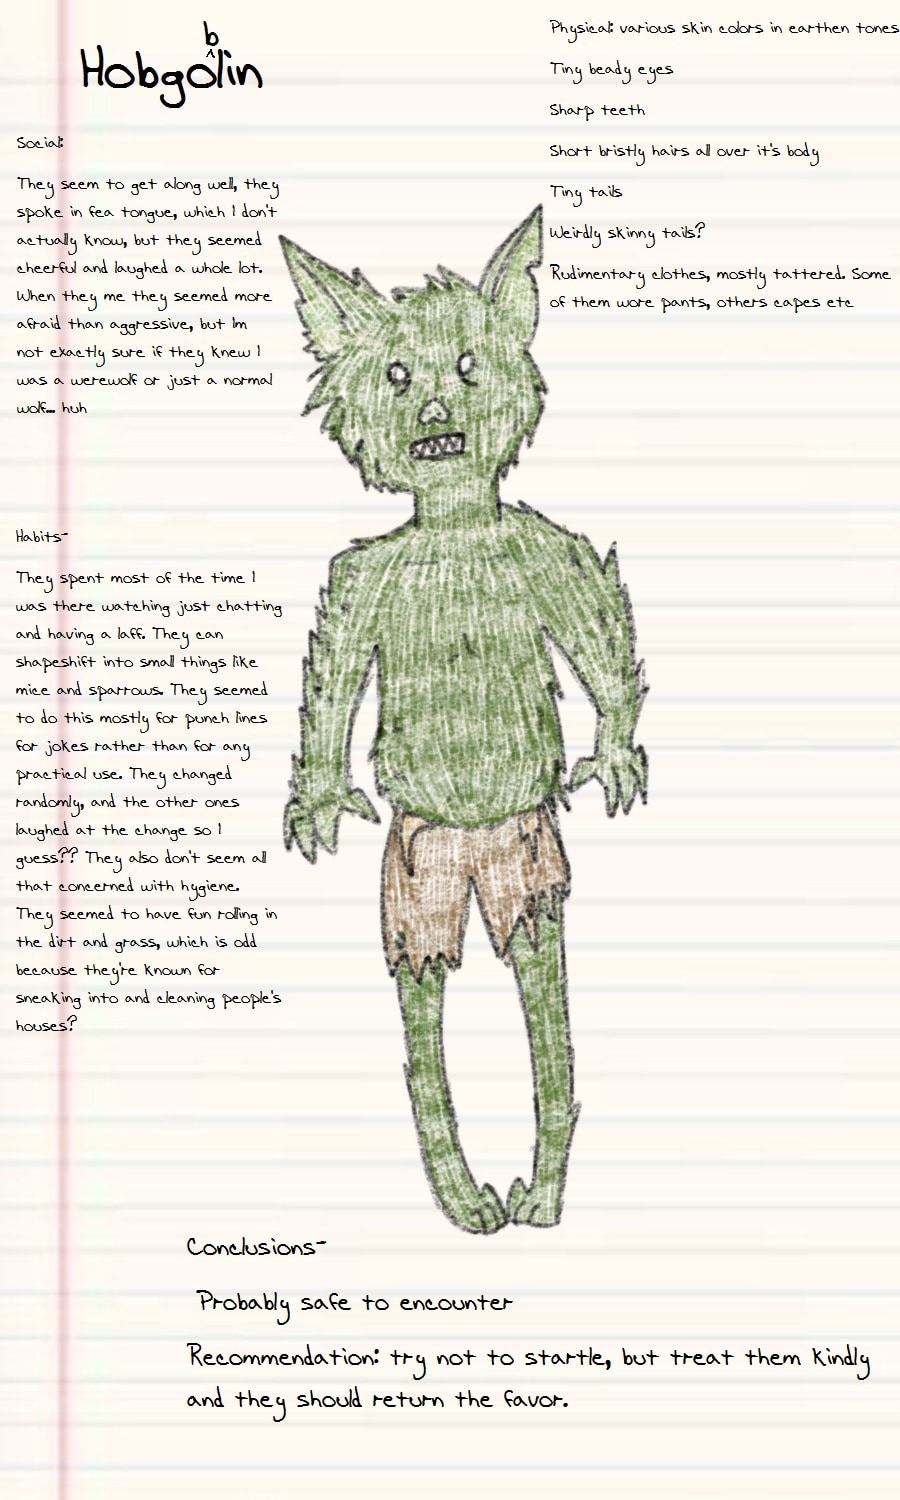 Hobgoblin
Social:
They seem to get along well, they
spoke in fea tongue, which I don't
actually know, but they seemed
cheerful and laughed a whole lot.
When they me they seemed more
afraid than aggressive, but Im
not exactly sure if they knew I
was a werewolf or just a normal
wolf... huh
Habits-
They spent most of the time I
was there watching just chatting
and having a laff. They can
shapeshift into small things like
mice and sparrows. They seemed
to do this mostly for punch lines
for jokes rather than for any
practical use. They changed
randomly, and the other ones
laughed at the change so I
guess?? They also don't seem all
that concerned with hygiene.
They seemed to have fun rolling in
the dirt and grass, which is odd
because they're known for
sneaking into and cleaning people's
houses?
Physical: various skin colors in earthen tones
Tiny beady eyes
Sharp teeth
Short bristly hairs all over it's body
Tiny tails
Weirdly skinny tails?
Rudimentary clothes, mostly tattered. Some
of them wore pants, others capes etc
Conclusions-
Probably safe to encounter
Recommendation: try not to startle, but treat them kindly
and they should return the favor.